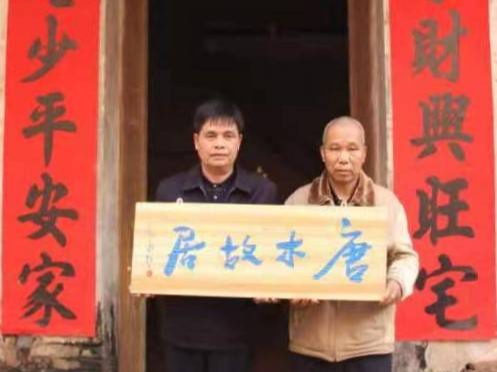 財興旺宅
唐木故居
少平安家